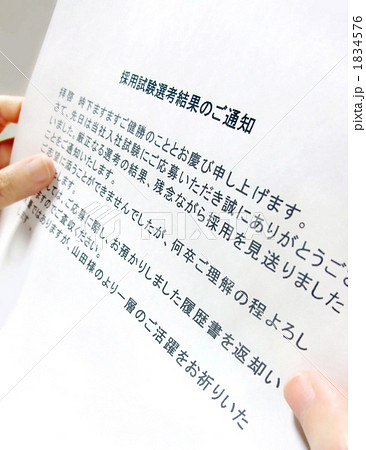 採用試験選考結果のご通知
拝啓 時下ますますご健勝のこととお慶び申し上げます。
さて、先日は当社入社試験にご応募いただき誠にありがとうござ
いました。厳正なる選考の結果、残念ながら採用を見送りました
ことをご通知いたします。
ご希望に添うことができませんでしたが、何卒ご理解の程よろし
お預かりしました履歴書を返却い
ご査収ください。
ではありますが 山田様のより一層のご活躍をお祈りいた
1834576